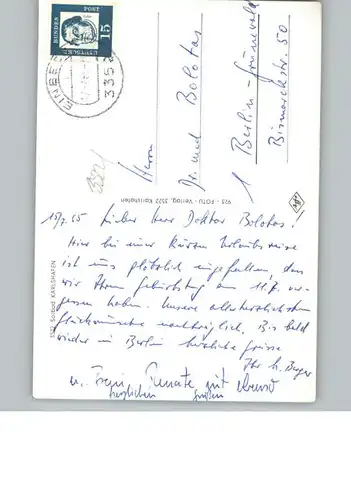 DEUTSCHE BUNDESPOST
15
EINBECK
335
Herrn
Dr. med Bolotas
1 Berlin-Grunewald
Bismarckstr. 50
923 - FOTO - Verlag, 3522 Karlshafen
3522 Solbad KARLSHAFEN
15/7.65 Lieber Herr Doktor Bolotas.
Hier bei einer kurzen Urlaubsreise
ist uns plötzlich eingefallen, das
wir Ihren Geburtstag am 11.7. ver-
gessen haben. Unsere allerherzlichsten
Glückwünsche nachträglich. Bis bald
wieder in Berlin herzliche Grüsse
Ihr H. Berger
u. Frau Renate mit
herzlichen Grüßen